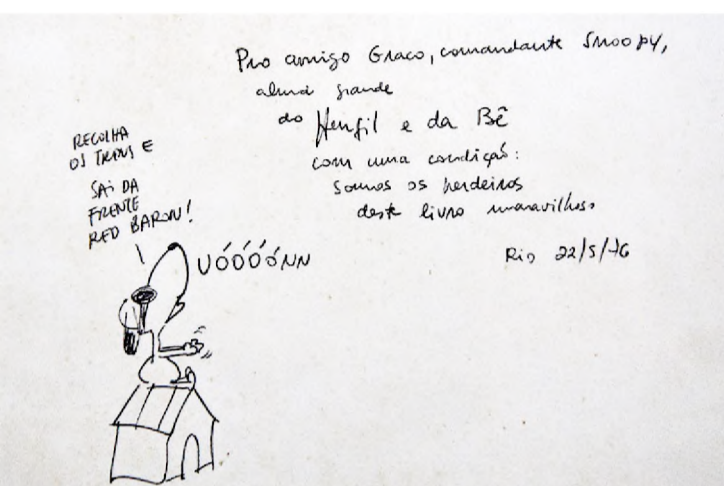 Pro amigo Graco, comandante Snoopy,
alma grande
do Henfil e da Bê
com uma condição:
somos os herdeiros
deste livro maravilhoso
Rio 22/5/76
RECOLHA
OS TRENS E
SAI DA
FRENTE
RED BARON!
VÓÓÓÓNN